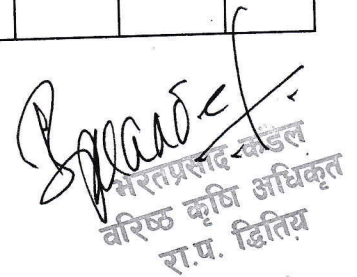 भरतप्रसाद कंडेल
वरिष्ठ कृषि अधिकृत
रा.प. द्धितिय